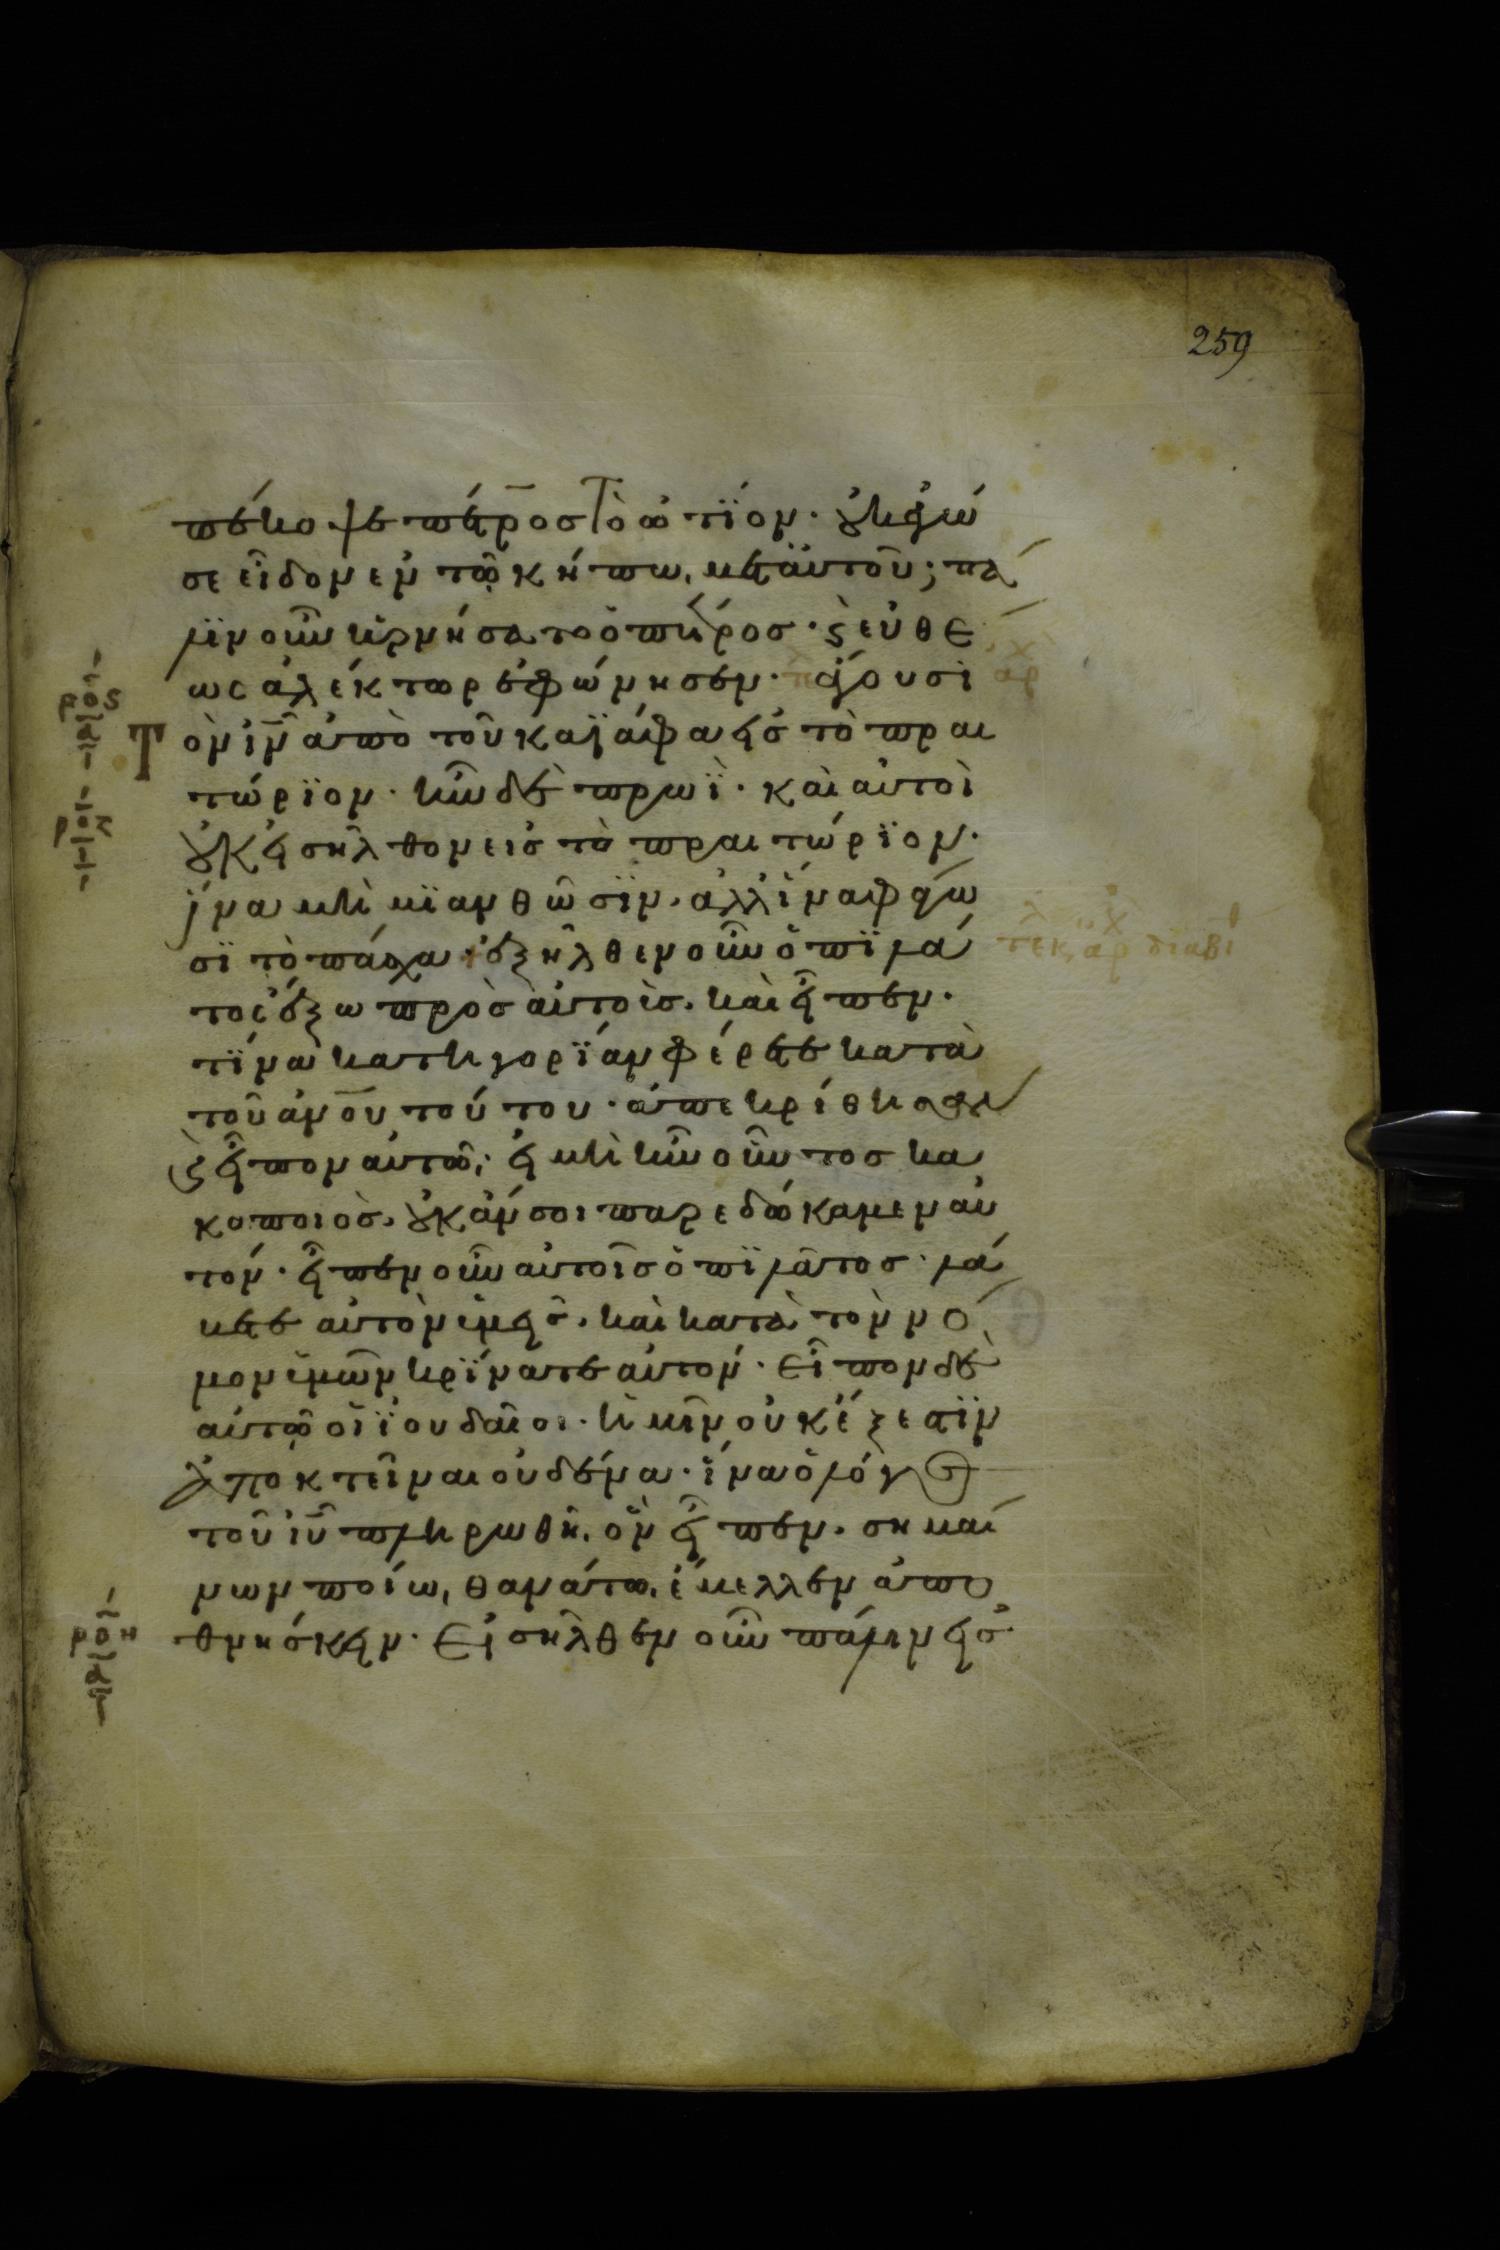 259
πέκοψε πέτρος τὸ ὠτΐον· οὐκ ἐγώ
σε εἶδον ἐν τῷ κήπω, μετ' αὐτοῦ; πά
λϊν οὖν ἠρνήσατο ὁ πέτρος· ϛ εὐθέ
ως ἀλέκτωρ ἐφώνησεν· ἄγουσι
Τὸν ἰν̅ ἀπὸ τοῦ καϊάφα εἰς τὸ πραι
τώρϊον· ἦν δὲ πρωΐ· καὶ αὐτοὶ
οὐκ εἰσῆλθον εἰς τὸ πραιτώρϊον·
ἵνα μὴ μϊανθῶσϊν. ἀλλ' ἵνα φάγω
σϊ τὸ πάσχα· ἐξῆλθεν οὖν ὁ πϊλά
τος ἔξω πρὸς αὐτοὺς. καὶ εἶπεν·
τΐνα κατηγορΐαν φέρετε κατὰ
τοῦ ἀνο̅υ τούτου· ἀπεκρίθησαν
ϛ εἶπον αὐτῶ· εἰ μὴ ἦν οὗτος κα
κοποιὸς. οὐκ ἄν σοι παρεδώκαμεν αὐ
τόν· εἶπεν οὖν αὐτοῖς ὁ πϊλᾶτος· λά
βετε αὐτὸν ὑμεῖς. καὶ κατὰ τὸν νό
μον ὑμῶν κρΐνατε αὐτόν· Εἶπον δὲ
αὐτῷ οἱ ϊουδαῖοι· ἡμῖν οὐκ έξεστϊν
ἀποκτεῖναι οὐδένα· ἵνα ὁ λόγος
τοῦ ἰυ̅ πληρωθῆ. ὃν εἶπεν. σημαί
νων ποίω, θανάτω, έμελλεν ἀπο
θνήσκειν· Εἰσῆλθεν οὖν πάλιν εἰς
ρος
α
ροζ
ι
ροη
α